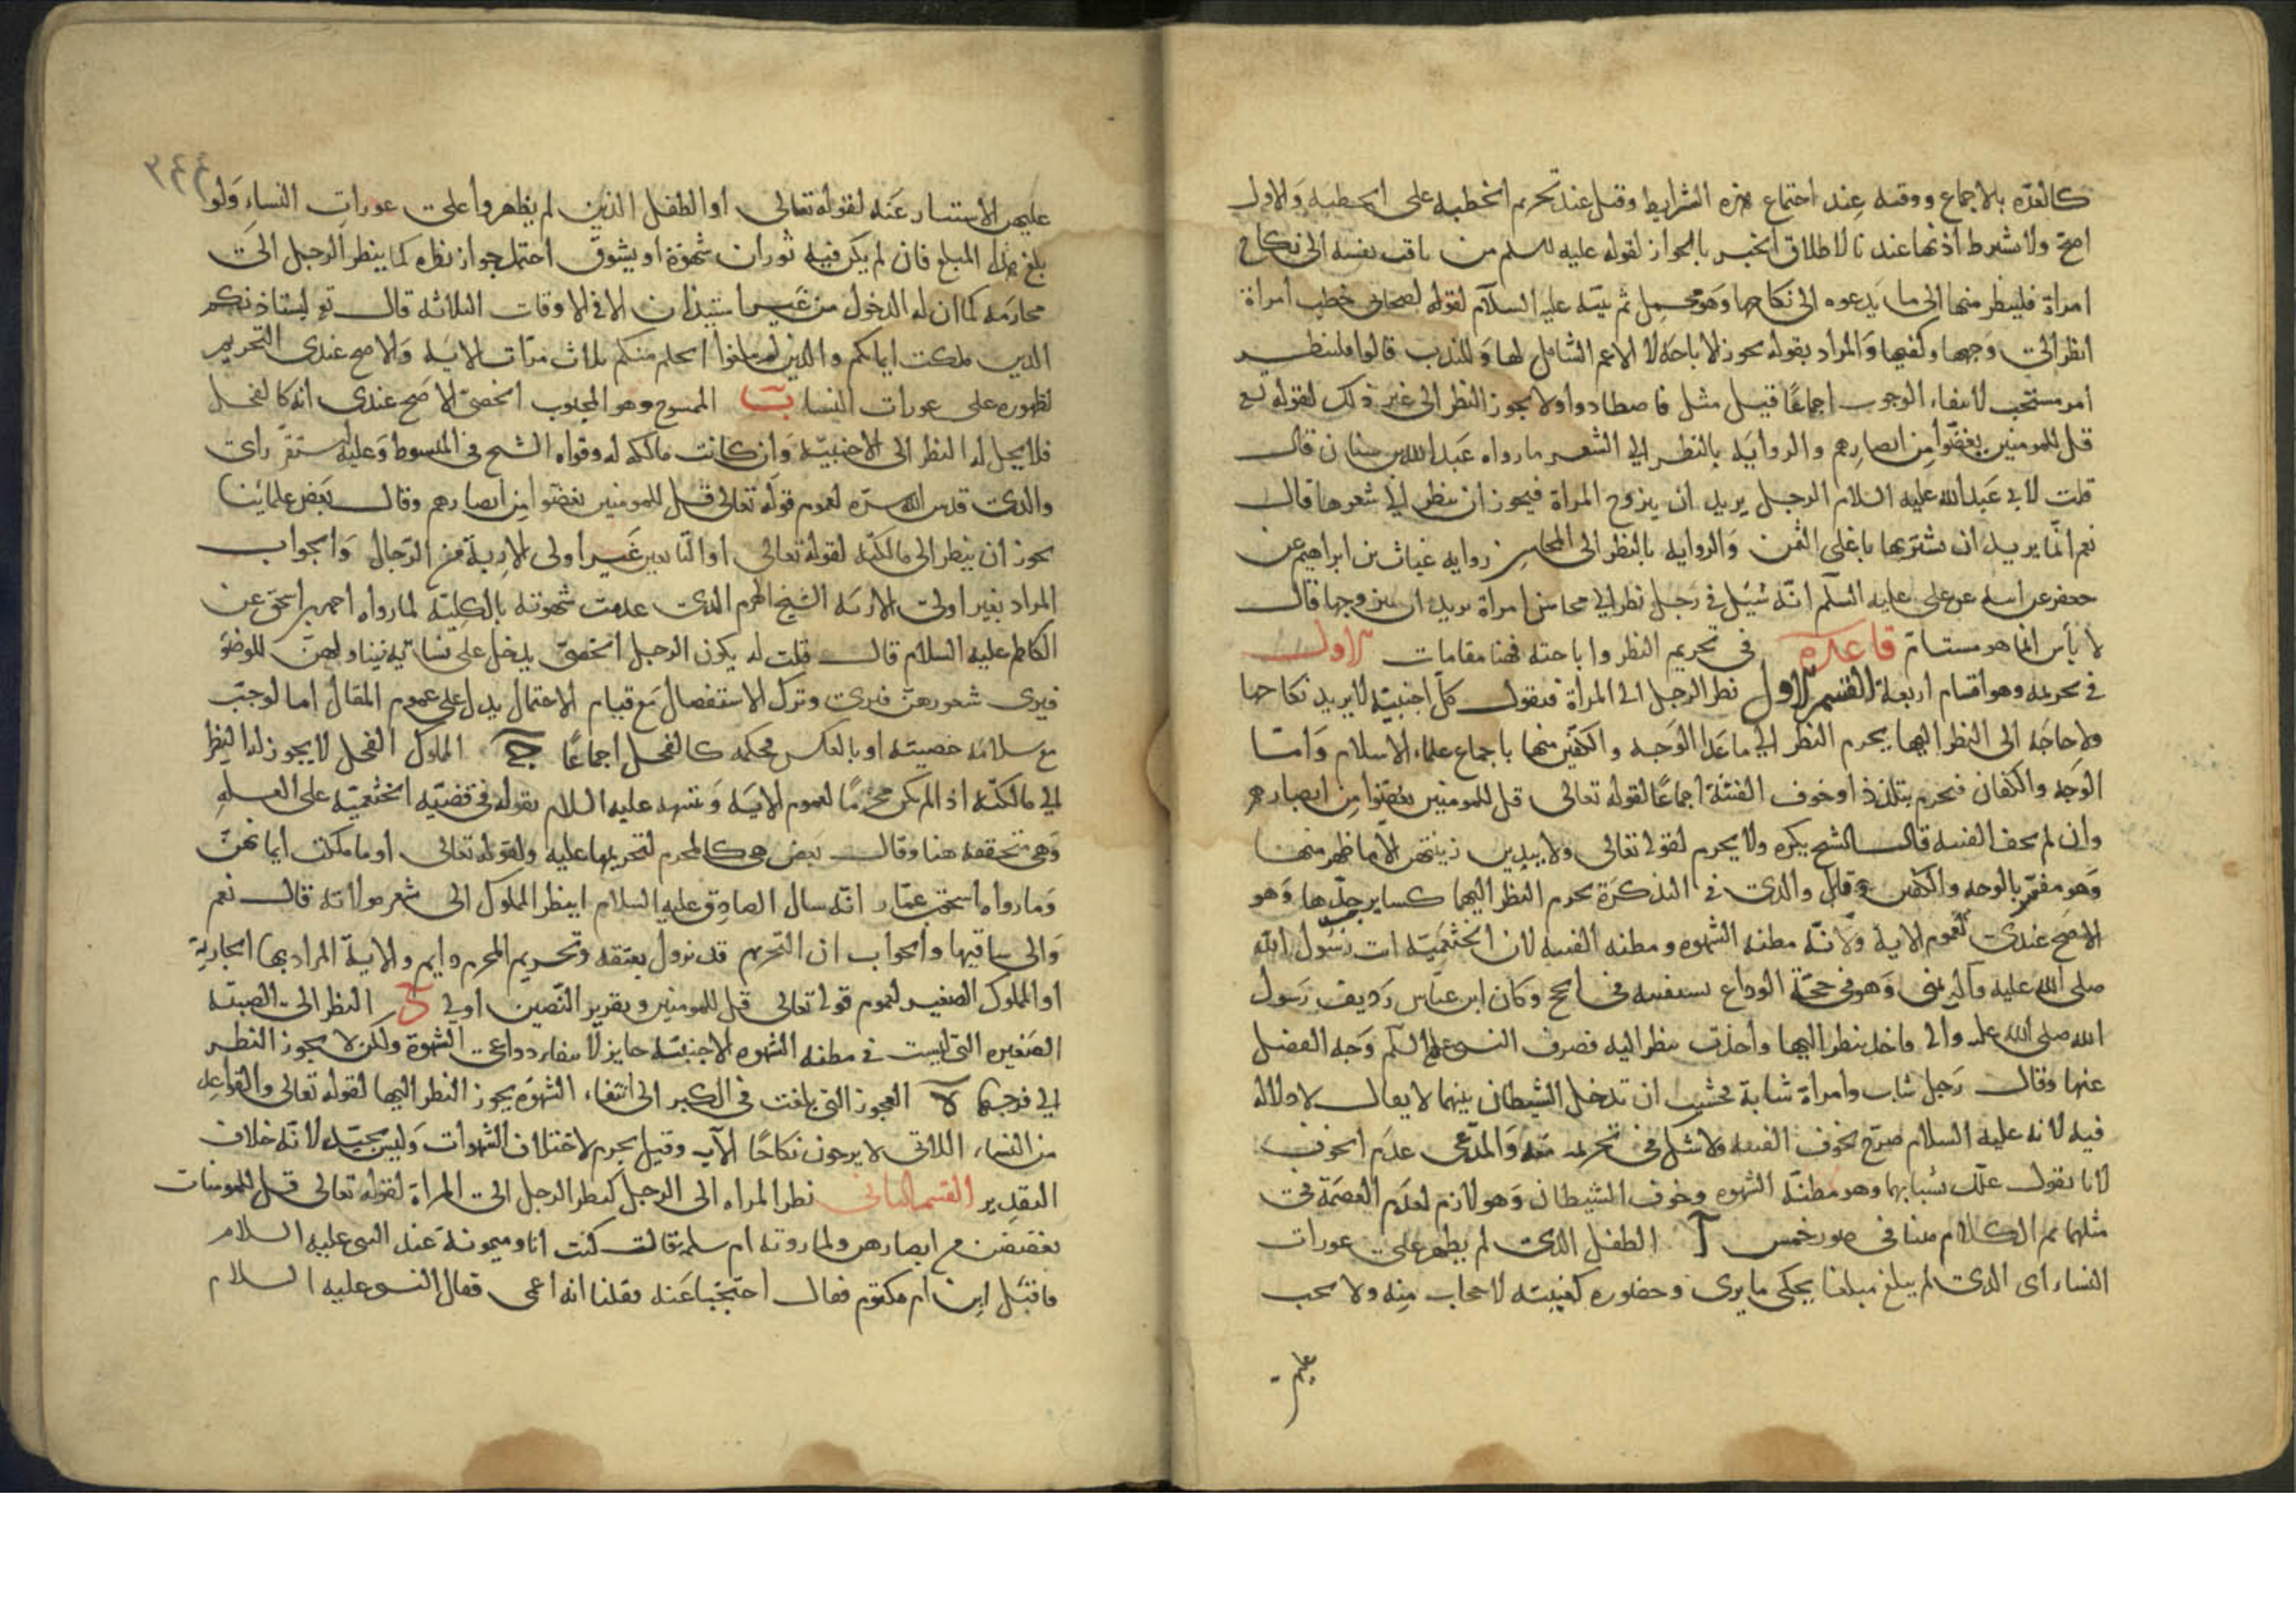 كالعدّه بالاجماع ووقته عِند اجتماع هذه الشرايط وقيل عند تحريم الخطبه على الخطبه وَالاول
اصحّ ولا يشترط اذنها عندنا لاطلاق الخبر بالجواز لقوله عليه السلم من تاقت نفسه الى نكاح
امراة فلينظر منها الى ما يَدعوه الى نكاحها وَهو مجمل ثم بيّنه عليه السلآم لقوله لصحابي خطب امراة
انظر الى وَجهها وكفيها وَالمراد بقوله يجوز الاباحَة لا الاعم الشامل لها وَللندب قالوا فلينظر
امر مستحب لانتفاء الوجوب اجماعًا قيل مثل فاصطادوا ولا يجوز النظر الى غير ذلك لقوله تع
قل للمومنين يغضّوا مِن ابصارِهم والروايَه بالنظر الي الشعر ما رواه عَبد الله بن سنان قال
قلت لابي عَبد الله عليه السلام الرجل يريد ان يتزوج المراة فيجوز ان ينظر الي شعرها قال
نعم انّما يريد ان يشتريها باغلى الثمن وَالروايه بالنظر الى المحاسِن روايه غياث بن ابراهيم عن
جعفر عن ابيه عن على عليه السلآم انّه سُئِل في رَجل نظر الي محاسن امراة يريد ان يتزوجها قال
لا بأس انما هو مستام قاعدة في تحريم النظر واباحته فهنا مقامات الاول
في تحريمه وهو اقسام اربعة القسم الاول نظر الرجل الى المرأة فنقول كلّ اجنبيّة لا يريد نكاحها
ولا حاجَة الى النظر اليها يحرم النظر الي ما عَدا الوَجه والكفّين منها باجماع علماء الاسلام وَامّا
الوَجه والكفان فيحرم بتلذذ اَو خوف الفتنة اجماعًا لقوله تعالى قل للمومنين يغضّوا مِن ابصارهم
وان لم يخف الفتنه قال الشيخ يكره ولا يحرم لقوله تعالى ولا يبدين زينتهن الا ما ظهر منها
وَهو مفسّر بالوجه والكفين وقال والدى في التذكرَة يحرم النظر اليهما كساير جسدها وَهو
الاصَح عندى لعموم الاية ولانّه مظنه الشهوه ومظنه الفتنه لان الخثعميّه اتت رسُول الله
صلى الله عليه وآله بمنى وَهو في حجّة الوداع تستفتيه في الحج وَكان ابن عبّاس رَديف رَسول
الله صلى الله عليه واله فاخذ ينظر اليها واخذت تنظر اليه فصرف النبى عليه السلآم وَجه الفضل
عنها وقال رَجل شاب وامراة شابة فخشيت ان تدخل الشيطان بينهما لا يقال لا دلالة
فيه لانه عليه السلام صرّح بخوف الفتنه ولا شك في تحريمه معه وَالمدّعى عدَم الخوف
لانا نقول علّل بشبابهما وهو مظنّة الشهوه وخوف الشيطان وَهو لازم لعدَم العصمة في
مثلهما ثم الكلام هنا في صور خمس آ الطفل الذى لم يظهر على عورات
النساء اى الذى لم يبلغ مبلغا يحكى ما يرى وحضوره كغيبته لا حجاب منِه ولا يجب
عليهن
٢٤٤
عليهن الاستتار عَنه لقوله تعالى او الطفل الذين لم يظهروا على عورات النساء وَلو
بلغ هذا المبلغ فان لم يكن فيه ثوران شهوَة او يشوق احتمل جواز نظره كما ينظر الرجل الى
محارمَه كما ان له الدخول من غير استيذان الا في الاوقات الثلاثه قال تع ليستاذنكم
الذين ملكت ايمانكم والذين لم يبلغوا الحلم منكم ثلاث مرّات الايه وَالاصح عندى التحريم
لظهوره على عورات النسا بـ الممسوح وهو المجبوب الخصىّ الاصح عندى انه كالفحل
فلا يحل له النظر الى الاجنبيّه وَان كانت مالكه له وقواه الشيخ في المبسوط وَعليه استقرّ راى
والدى قدس الله سرّه لعموم قوله تعالى قل للمومنين يغضّوا مِن ابصارهم وقال بَعض علمائنا
يجوز ان ينظر الى مالكته لقوله تعالى او التابعين غير اولى الاربة مِن الرّجال وَالجواب
المراد بغير اولى الاربه الشيخ الهرم الذى عدمت شهوته بالكليّه لما رواه احمد بن اسحق عن
الكاظم عليه السلام قال قلت له يكون الرجل الخصىّ يدخل على نسائه يناولهنّ للوضوَ
فيرى شعورهنّ فيرى وترك الاستفصال مَع قيام الاحتمال يدل على عموم المقال اما لو جبّ
مع سلامه خصيته او بالعكس فحكمه كالفحل اجماعًا جـ المملوك الفحل لا يجوز له النظر
الي مالكته اذ لم يكن محرمًا لعموم الايَه وَ عليه السلام بقوله في قضيّه الخثعميّه على العله
وَهى متحققه هنا وقال بَعض هى كالمحرم لتحريمها عليه ولقوله تعالى او ما ملكت ايمانهنّ
وَما رواه اسحق بن عمّار انّه سال الصادق عليه السلام اينظر المملوك الى شعر مولاته قال نعم
وَالى ساقيها والجواب ان التحريم قد يزول بعتقه وتحريم المحرم دايم والاية المراد بها الجارية
او المملوك الصغير لعموم قوله تعالى قل للمومنين وتقرير النّصين اولى د النظر الى الصبيّه
الصَغيره التي ليست في مظنه الشهوه الاجنبيّه جايز لانتفاء دواعى الشهوة ولكن لا يجوز النظر
الي فرجها هـ العجوز التي بلغت في الكبر الى انتفاء الشهوَة يجوز النظر اليها لقوله تعالى والقواعد
من النساء اللاتى لا يرجون نكاحًا الآيه وقيل يحرم لاختلاف الشهوات وَليس بجيّد لانّه خلاف
التقدير القسم الثانى نظر المراه الى الرجل كنظر الرجل الى المراة لقوله تعالى قل للمومنات
يغضضن من ابصارهن ولما روته ام سلمة قالت كنت انا وميمونة عند النبى عليه السلام
فاقبَل ابن ام مكتوم فقال احتجبا عَنه فقلنا انه اعمى فقال النبى عليه السلام